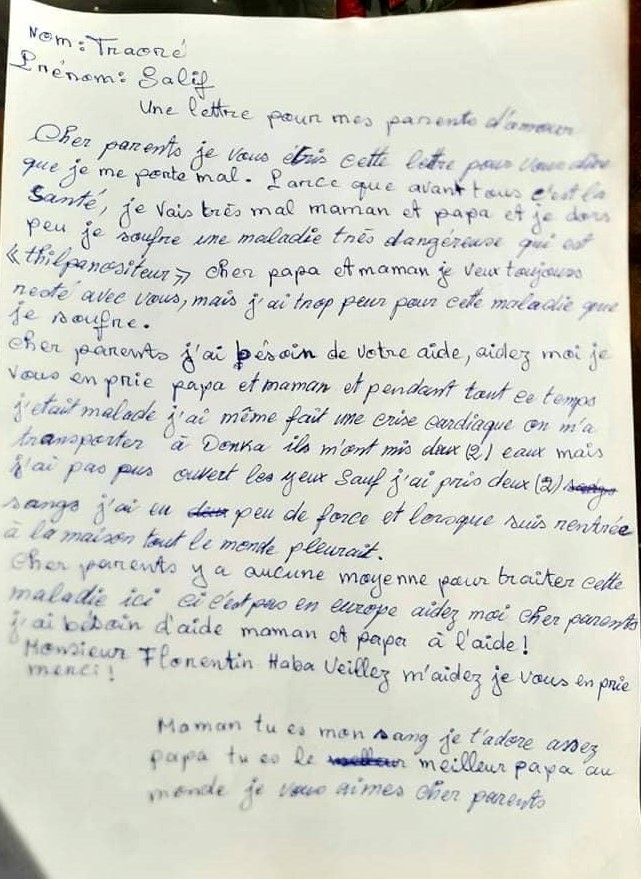 Nom: Traoré
Prénom: Salif
Une lettre pour mes parents d'amour
Cher parents je vous écris cette lettre pour vous dire
que je me porte mal. Parce que avant tous c'est la
Santé, je vais très mal maman et papa et je dors
peu je soufre une maladie très dangéreuse qui est
« thilpanositeur » cher papa et maman je veux toujours
resté avec vous, mais j'ai trop peur pour cette maladie que
je soufre.
cher parents j'ai bésoin de votre aide, aidez moi je
vous en prie papa et maman et pendant tout ce temps
j'etait malade j'ai même fait une crise cardiaque on m'a
transporter à Donka ils m'ont mis deux (2) eaux mais
j'ai pas pus ouvert les yeux Sauf j'ai pris deux (2)
sangs j'ai eu peu de force et lorsque suis rentrée
à la maison tout le monde pleurait.
Cher parents y a aucune moyenne pour traiter cette
maladie ici ci c'est pas en europe aidez moi cher parents
j'ai bésoin d'aide maman et papa à l'aide!
Monsieur Florentin Haba Veillez m'aidez je vous en prie
merci!
Maman tu es mon sang je t'adore assez
papa tu es le meilleur papa au
monde je vous aimes cher parents